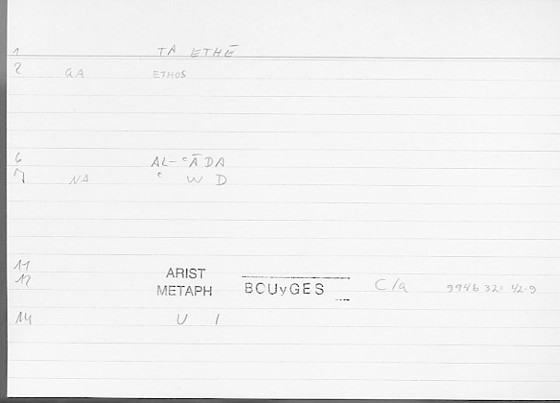 1 TA ETHĒ
2 GA ETHOS
6 AL-ʿĀDA
7 NA ʿ W D
11 ARIST
12 METAPH BOUyGES C/a 994b 32: 42.9
14 U I